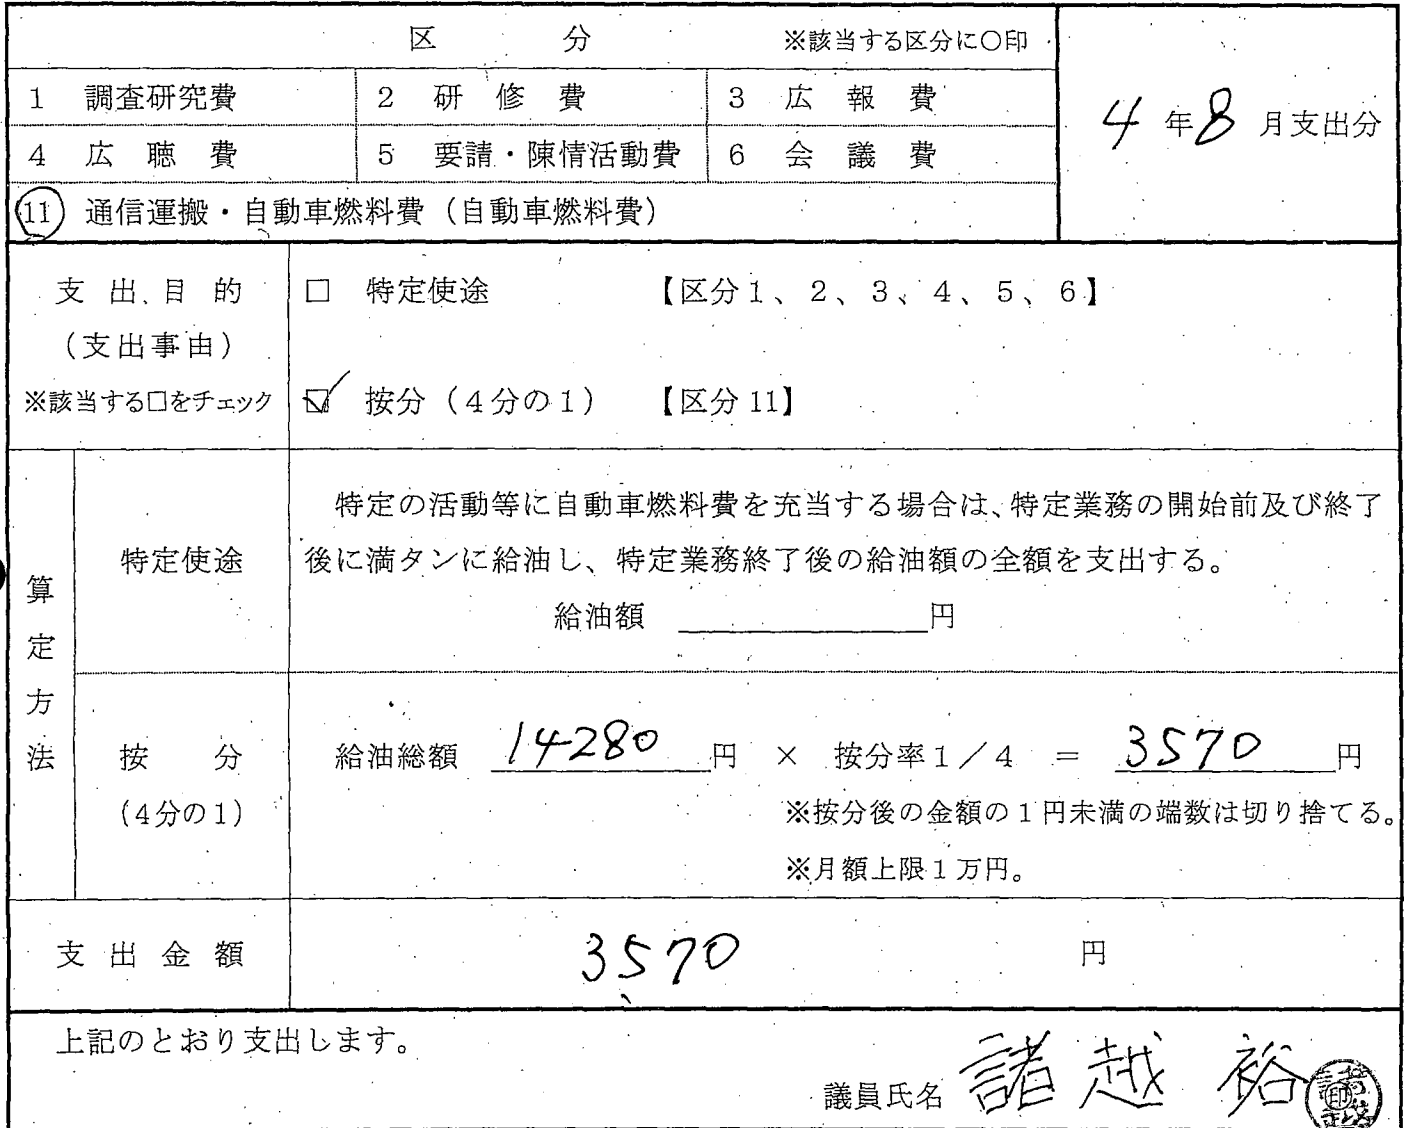 区 分 ※該当する区分に○印
4年8月支出分
1 調査研究費 2 研修費 3 広報費
4 広聴費 5 要請・陳情活動費 6 会議費
11 通信運搬・自動車燃料費（自動車燃料費）
支出目的
（支出事由）
※該当する□をチェック
□ 特定使途 【区分1、2、3、4、5、6】
☑ 按分（4分の1） 【区分11】
算定方法
特定使途
特定の活動等に自動車燃料費を充当する場合は、特定業務の開始前及び終了
後に満タンに給油し、特定業務終了後の給油額の全額を支出する。
給油額 円
按分
（4分の1）
給油総額 14280 円 × 按分率1／4 ＝ 3570 円
※按分後の金額の1円未満の端数は切り捨てる。
※月額上限1万円。
支出金額 3570 円
上記のとおり支出します。
議員氏名 諸越 裕
印